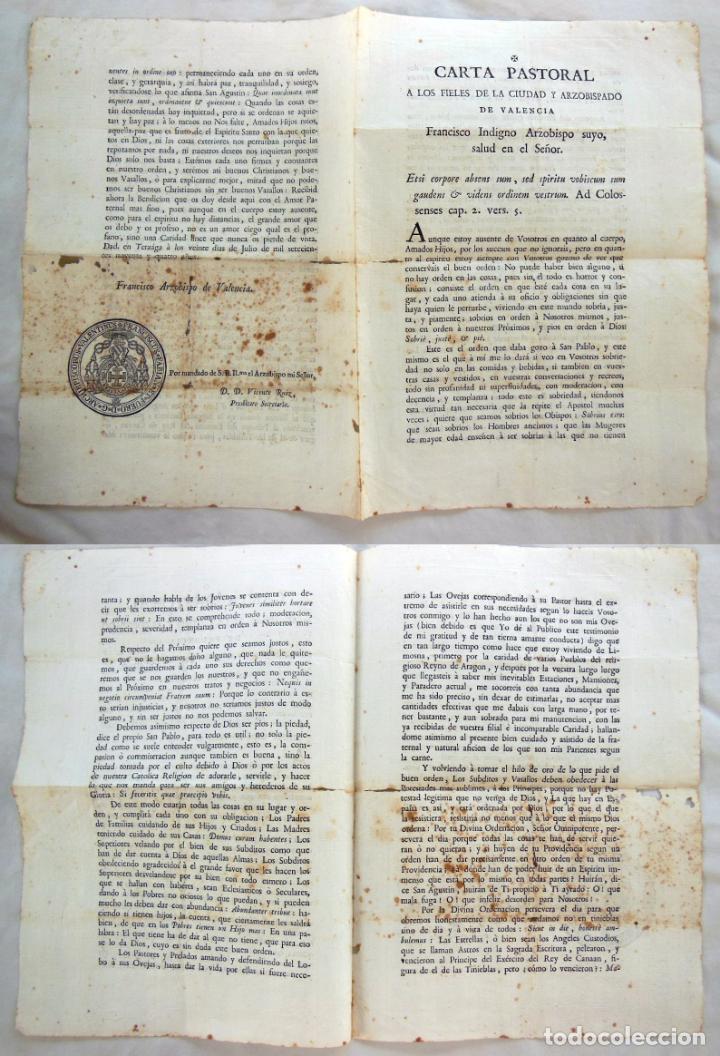 ✠
CARTA PASTORAL
A LOS FIELES DE LA CIUDAD Y ARZOBISPADO
DE VALENCIA
Francisco Indigno Arzobispo suyo,
salud en el Señor.
Etsi corpore absens sum, sed spiritu vobiscum sum
gaudens & videns ordinem vestrum. Ad Colos-
senses cap. 2. vers. 5.
Aunque estoy ausente de Vosotros en quanto al cuerpo,
Amados Hijos, por los sucesos que no ignorais, pero en quanto
al espiritu estoy siempre con Vosotros gozoso de ver que
conservais el buen orden: No puede haber bien alguno, si
no hay orden en las cosas, pues sin él todo es horror y con-
fusion; consiste el orden en que esté cada cosa en su lu-
gar, y cada uno atienda à su oficio y obligaciones sin que
haya quien le perturbe, viviendo en este mundo sobria, jus-
ta, y piamente; sobrios en orden à Nosotros mismos, jus-
tos en orden à nuestros Próximos, y pios en orden à Dios:
Sobriè, justè, & piè.
Este es el orden que daba gozo à San Pablo, y este
mismo es el que à mí me lo dará si veo en Vosotros sobrie-
dad no solo en las comidas y bebidas, si tambien en vues-
tras casas y vestidos, en vuestras conversaciones y recreos,
todo sin profanidad ni superfluidades, con moderacion, con
decencia, y templanza; todo esto es sobriedad, siendonos
esta virtud tan necesaria que la repite el Apostol muchas
veces; quiere que seamos sobrios los Obispos: Sobrios eos:
que sean sobrios los Hombres ancianos; que las Mugeres
de mayor edad enseñen à ser sobrias à las que no tienen
tanta; y quando habla de los Jovenes se contenta con de-
cir que les exortemos à ser sobrios: Juvenes similiter hortare
ut sobrii sint: En esto se comprehende todo; moderacion,
prudencia, severidad, templanza en orden à Nosotros mis-
mos.
Respecto del Próximo quiere que seamos justos, esto
es, que no le hagamos daño alguno, que nada le quite-
mos, que guardemos à cada uno sus derechos como que-
remos que se nos guarden los nuestros, y que no engañe-
mos al Próximo en nuestros tratos y negocios: Nequis in
negotio circumveniat Fratrem suum: Porque lo contrario à es-
to serian injusticias, y nosotros no seriamos justos de modo
alguno, y sin ser justos no nos podemos salvar.
Debemos asimismo respecto de Dios ser pios; la piedad,
dice el propio San Pablo, para todo es util; no solo la pie-
dad como se suele entender vulgarmente, esto es, la com-
pasion ó commiseracion aunque tambien es buena, sino la
piedad tomada por el culto debido à Dios ó por los actos
de nuestra Catolica Religion de adorarle, servirle, y hacer
lo que nos manda para ser sus amigos y herederos de su
Gloria: Si feceritis quae praecipio vobis.
De este modo estarán todas las cosas en su lugar y or-
den, y cumplirá cada uno con su obligacion; Los Padres
de Familias cuidando de sus Hijos y Criados; Las Madres
teniendo cuidado de sus Casas: Domus curam habentes; Los
Superiores velando por el bien de sus Subditos como que
han de dar cuenta à Dios de aquellas Almas; Los Subditos
obedeciendo agradecidos à el grande favor que les hacen los
Superiores desvelandose por su bien con todo esmero; Los
que se hallan con haberes, sean Eclesiasticos ó Seculares,
dando à los Pobres no ociosos lo que puedan, y si pueden
mucho les deben dar con abundancia: Abundanter tribue: ha-
ciendo si tienen hijos, la cuenta, que ciertamente les saldrá
bien, de que en los Pobres tienen un Hijo mas: En una pa-
labra: El que tiene ha de dar al que no tiene, que para eso
se lo da Dios, cuyo es sin duda este buen orden.
Los Pastores y Prelados amando y defendiendo del Lo-
bo à sus Ovejas, hasta dar la vida por ellas si fuere nece-
2
sario; Las Ovejas correspondiendo à su Pastor hasta el ex-
tremo de asistirle en sus necesidades segun lo haceis Voso-
tros conmigo y lo han hecho aun los que no son mis Ove-
jas (bien debido es que Yo dé al Publico este testimonio
de mi gratitud y de tan tierna amante conducta) digo que
en tan largo tiempo como hace que estoy viviendo de Li-
mosna, primero por la caridad de varios Pueblos del reli-
gioso Reyno de Aragon, y despues por la vuestra luego luego
que llegasteis à saber mis inevitables Estaciones, Mansiones,
y Paradero actual, me socorreis con tanta abundancia que
me ha sido preciso, sin dexar de estimarlas, no aceptar mas
cantidades efectivas que me dabais con larga mano, por te-
ner bastante, y aun sobrado para mi manutencion, con las
ya recibidas de vuestra filial é incomparable Caridad; hallan-
dome asimismo al presente bien cuidado y asistido de la fra-
ternal y natural aficion de los que son mis Parienses segun
la carne.
Y volviendo à tomar el hilo de oro de lo que pide el
buen orden, Los Subditos y Vasallos deben obedecer à las
Potestades mas sublimes, à los Principes, porque no hay Po-
testad legitima que no venga de Dios, y La que hay en Es-
paña es, así, y está ordenada por Dios; por lo que el que
la resistiera, resistiria no menos que à lo que el mismo Dios
ordena: Por tu Divina Ordenacion, Señor Omnipotente, per-
severa el dia porque todas las cosas te han de servir quie-
ran ó no quieran; y si huyen de tu Providencia segun un
orden han de dar precisamente en otro orden de tu misma
Providencia: Adonde han de poder huir de un Espiritu inmenso
que está por lo mismo en todas partes? Huirán, di-
ce San Agustin, huirán de Ti propicio à Ti ayrado: O! que
mala fuga! O! que infeliz desorden para Nosotros!
Por la Divina Ordenacion persevera el dia para que
obremos honestamente como que andamos no en tinieblas
uno de dia y à vista de todos: Sicut in die, honestè am-
bulemus: Las Estrellas, ó bien sean los Angeles Custodios,
que se llaman Astros en la Sagrada Escritura, pelearon, y
vencieron al Principe del Exército del Rey de Canaan, fi-
gura de el de las Tinieblas, pero ¿cómo lo vencieron?: Ma-
nentes in ordine suo: permaneciendo cada uno en su orden,
clase, y gerarquia, y así habrá paz, tranquilidad, y sosiego,
verificandose lo que afirma San Agustin: Quae inordinata sunt
inquieta sunt, ordinantur & quiescunt: Quando las cosas es-
tán desordenadas hoy inquietud, pero si se ordenan se aquie-
tan y hay paz; à lo menos no Nos falte, Amados Hijos mios,
aquella paz que es fruto de el Espiritu Santo con la que quie-
tos en Dios, ni las cosas exteriores nos perturban porque las
reputamos por nada, ni nuestros deseos nos inquietan porque
Dios solo nos basta: Estemos cada uno firmes y constantes
en nuestro orden, y seremos así buenos Christianos y bue-
nos Vasallos, ó para explicarme mejor, mirad que no pode-
mos ser buenos Christianos sin ser buenos Vasallos: Recibid
ahora la Bendicion que os doy desde aqui con el Amor Pa-
ternal mas fino, pues aunque en el cuerpo estoy ausente,
como para el espiritu no hay distancias, el grande amor que
os debo y os profeso, no es un amor ciego qual es el pro-
fano, sino una Caridad lince que nunca os pierde de vista.
Dad. en Terzaga à los veinte dias de Julio de mil setecien-
tos noventa y quatro años.
Francisco Arzobispo de Valencia.
Por mandado de S. E. Il.ma el Arzobispo mi Señor,
D. D. Vicente Ruiz,
Presbitero Secretario.
todocoleccion
todocoleccion.net